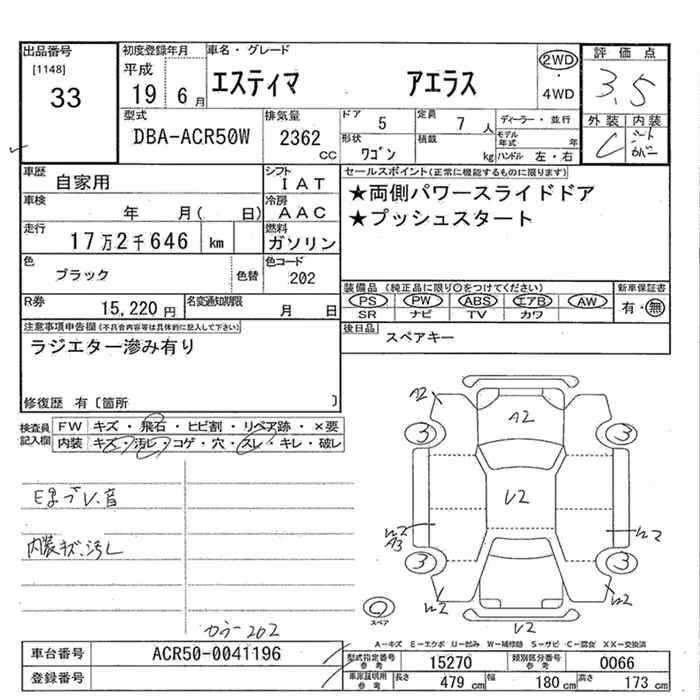 出品番号 初度登録年月 車名・グレード 評価点
[1148] 平成 エスティマ アエラス 2WD・4WD 3.5
33 19 6月
型式 排気量 ドア 5 定員 7人 ディーラー・並行 外装 内装
DBA-ACR50W 2362cc 形状 ワゴン 積載 kg モデル年式 年 ハンドル 左・右 C
車歴 自家用 シフト IAT セールスポイント(正常に機能するものに限ります)
車検 年 月( 日) 冷房 AAC ★両側パワースライドドア
走行 17万2千646 km 燃料 ガソリン ★プッシュスタート
色 ブラック 色替 色コード 202 装備品(純正品に限り○をつけてください) 新車保証書
R券 15,220円 名変通知期限 月 日 PS PW ABS エアB AW 有・無
SR ナビ TV カワ
注意事項申告欄(不具合内容等は具体的に記入して下さい) 後日品 スペアキー
ラジエター滲み有り
修復歴 有〔箇所 〕
検査員記入欄 FW キズ・飛石・ヒビ割・リペア跡・×要
内装 キズ・汚レ・コゲ・穴・スレ・キレ・破レ
A2 A2
3 3
U2
A3
3 3
U2
内装キズ、汚レ
スペア
カラー202
A-キズ E-エクボ U-凹み W-補修跡 S-サビ・C-腐食 XX-交換済
車台番号 ACR50-0041196 型式指定番号 参考 15270 類別区分番号 参考 0066
登録番号 車庫証明用 参考 長さ 479cm 幅 180cm 高さ 173cm